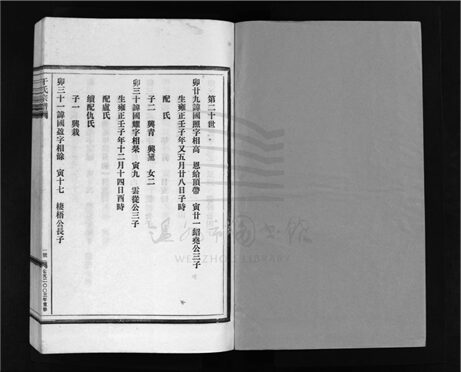 第二十世
卯廿九諱國照字相高 恩給頂帶 寅廿一紹堯公三子
生雍正壬子年又五月廿八日子時
配 氏
子二 興青 興黨 女二
卯三十諱國耀字相榮 寅九 雲從公三子
生雍正壬子年十二月十四日酉時
配盧氏
續配仇氏
子一 興栽
卯三十一諱國盈字相餘 寅十七 棲梧公長子
于氏宗譜
二〇〇三年重修
WENZHOU LIBRARY